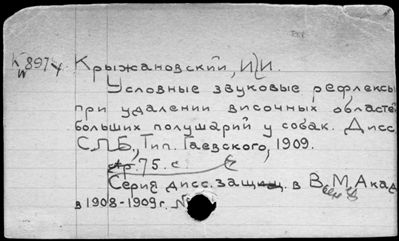 897 Крыжановский, И.И.
Условные звуковые рефлексы
при удалении височных областей
больших полушарий у собак. Дисс.
С.П.Б., Тип. Гаевского, 1909.
75. с.
Серия дисс. защищ. в В. М. Акад
в 1908-1909 г. №